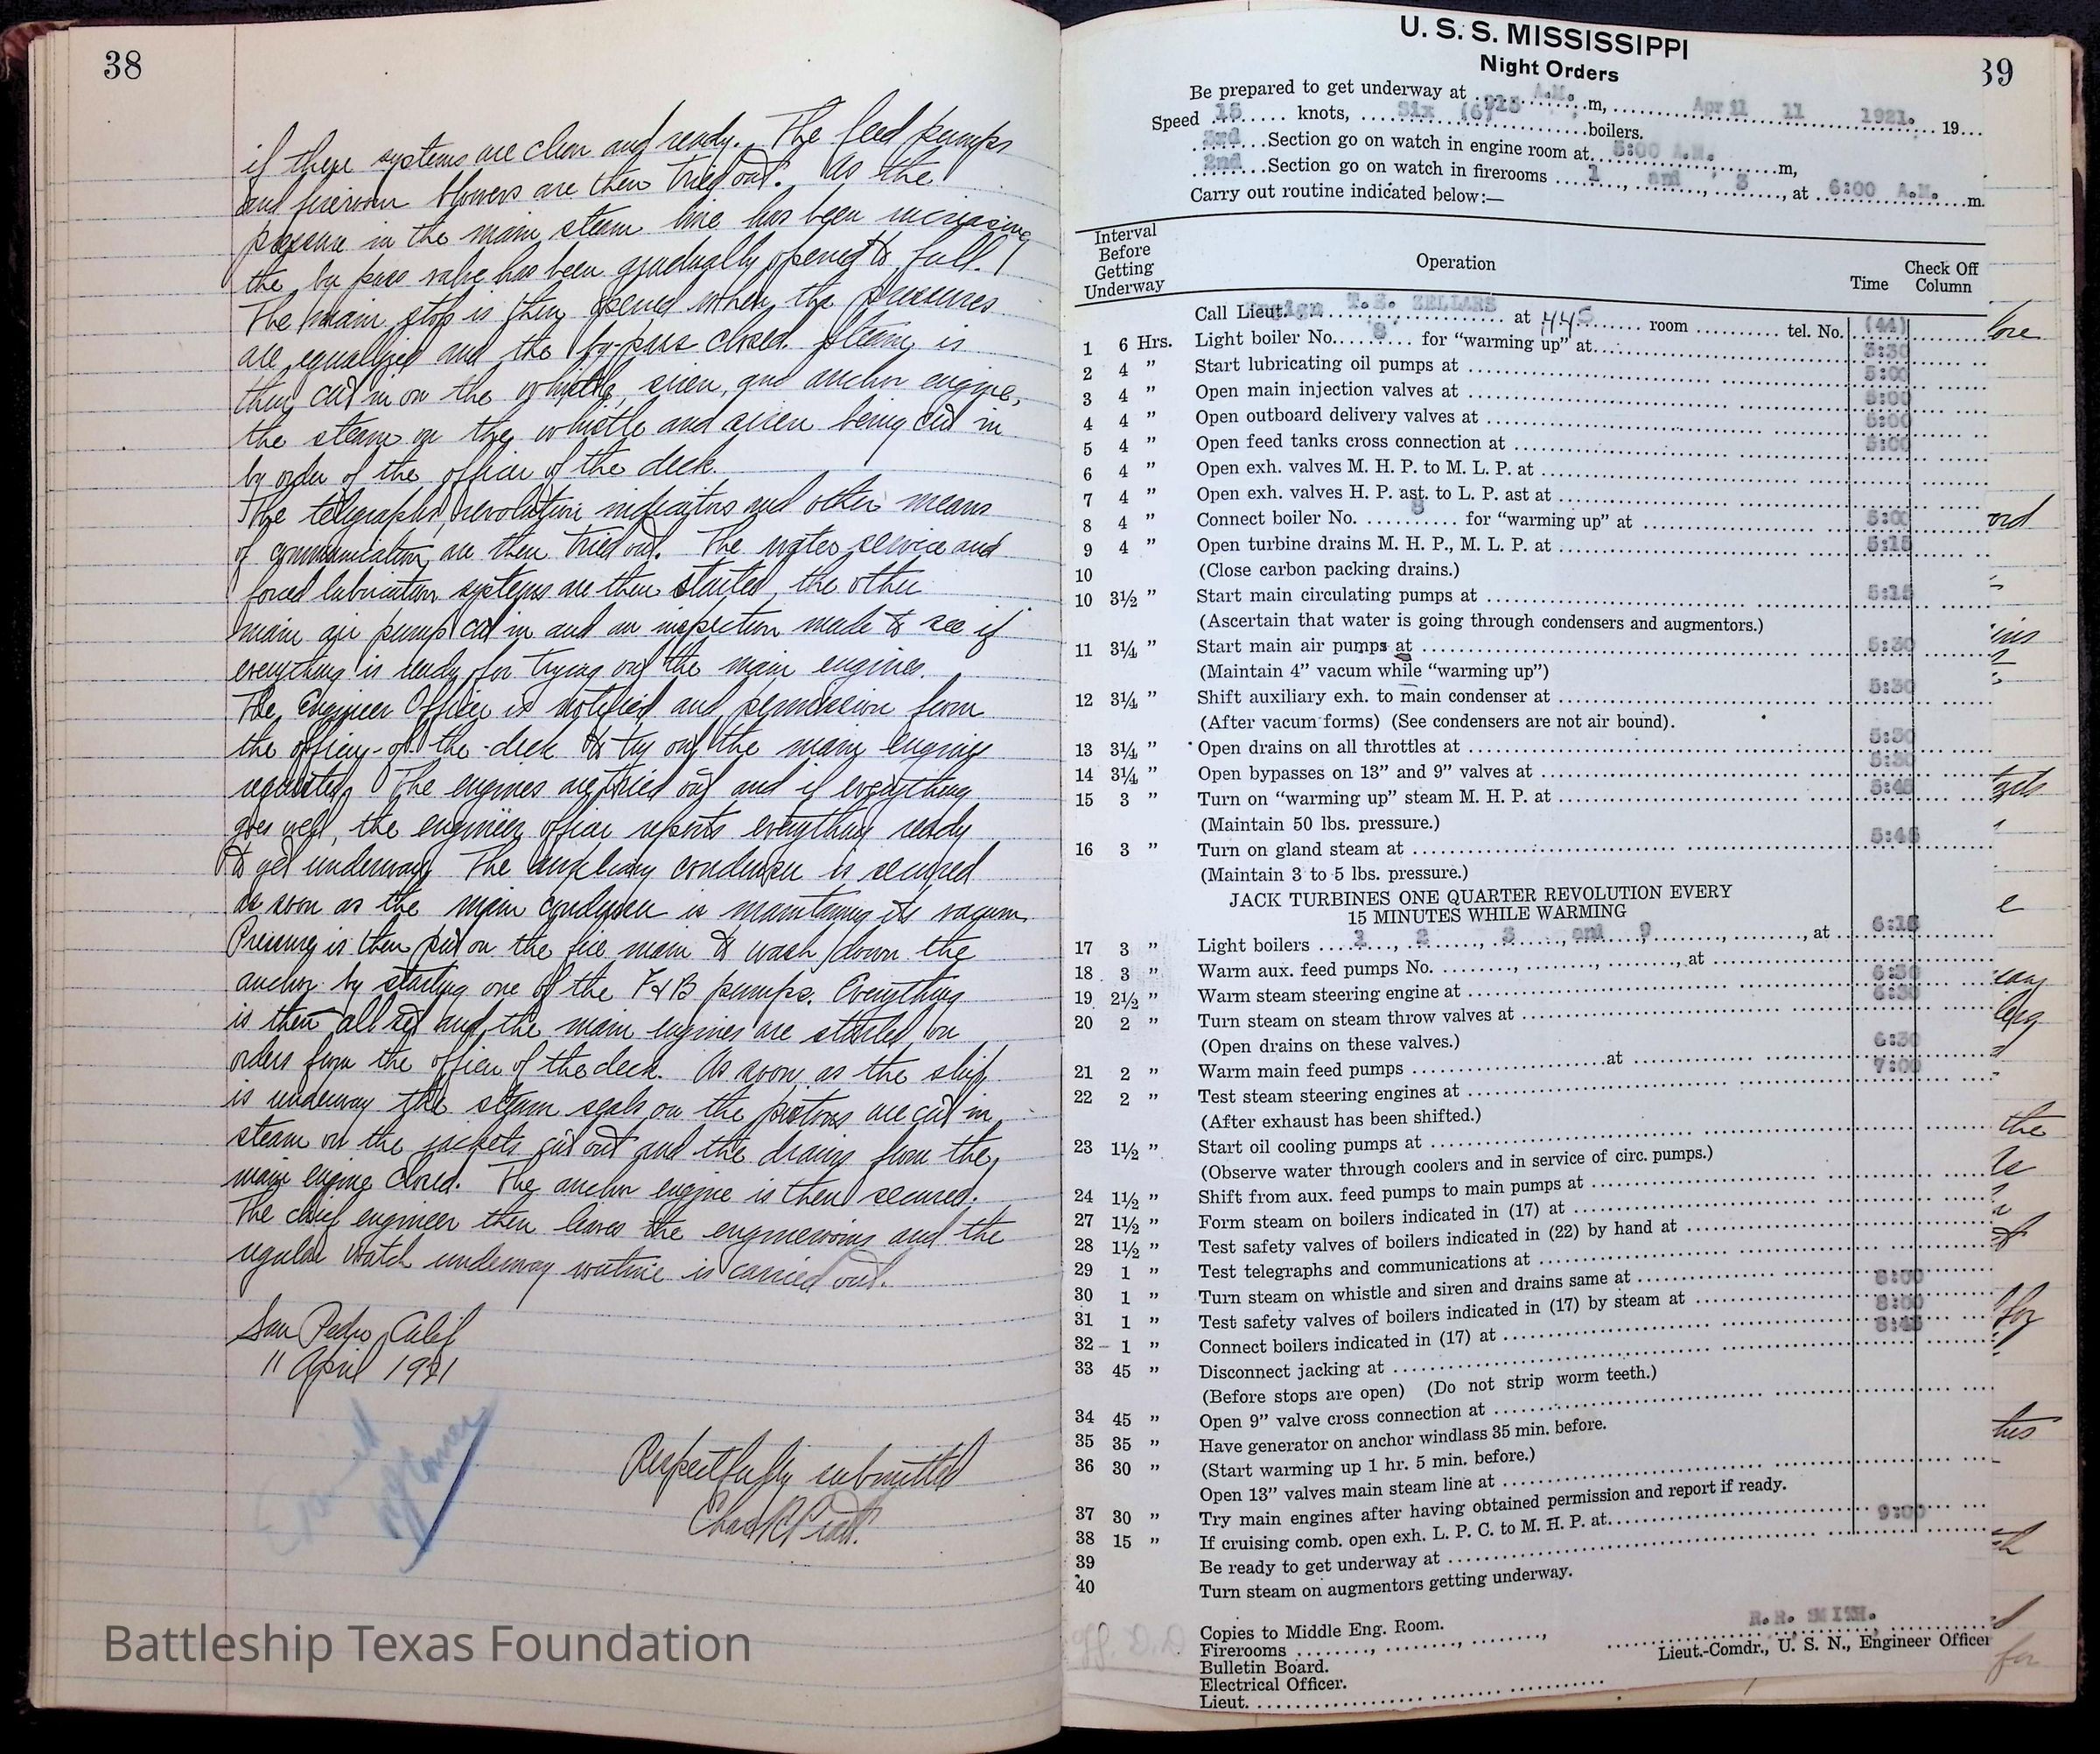 38
if these systems are clear and ready. The feed pumps
and fireroom blowers are then tried out. As the
pressure in the main steam line has been increasing
the by pass valve has been gradually opened to full.
The main stop is then opened when the pressures
are equalized and the by-pass closed. Steam is
then cut in on the whistle, siren, and anchor engine,
the steam on the whistle and siren being cut in
by order of the officer of the deck.
The telegraphs, revolution indicators and other means
of communication are then tried out. The water service and
forced lubrication systems are then started, the other
main air pump cut in and an inspection made to see if
everything is ready for trying out the main engines.
The Engineer Officer is notified and permission from
the officer-of-the-deck to try out the main engines
requested. The engines are tried out and if everything
goes well, the engineer officer reports everything ready
to get underway. The auxiliary condenser is secured
as soon as the main condenser is maintaining its vacuum.
Pressure is then put on the fire main to wash down the
anchor by starting one of the F&B pumps. Everything
is then all set and the main engines are started on
orders from the officer of the deck. As soon as the ship
is underway the steam seals on the pistons are cut in,
steam on the jackets cut out and the drains from the
main engine closed. The anchor engine is then secured.
The chief engineer then leaves the enginerooms and the
regular watch underway routine is carried out.
San Pedro, Calif
11 April 1921
Respectfully submitted
Battleship Texas Foundation
39
U. S. S. MISSISSIPPI
Night Orders
Be prepared to get underway at ... 915 A.M. m, ... April 11 1921. ... 19...
Speed 15 ...... knots, ... Six (6) ... boilers.
3rd ... Section go on watch in engine room at ... 5:00 A.M. ... m,
2nd ... Section go on watch in firerooms ... 1 ..., and ..., 3 ..., at 6:00 A.M. ... m.
Carry out routine indicated below:—
Interval Before Getting Underway
Operation
Time
Check Off Column
Call Lieut. Ensign T.E. ZELLARS ... at 445 ... room ... tel. No. (44)
1 6 Hrs. Light boiler No. ... 8 ... for “warming up” at ... 3:30
2 4 ” Start lubricating oil pumps at ... 5:00
3 4 ” Open main injection valves at ... 5:00
4 4 ” Open outboard delivery valves at ... 5:00
5 4 ” Open feed tanks cross connection at ... 5:00
6 4 ” Open exh. valves M. H. P. to M. L. P. at ...
7 4 ” Open exh. valves H. P. ast. to L. P. ast at ...
8 4 ” Connect boiler No. ... 8 ... for “warming up” at ... 5:00
9 4 ” Open turbine drains M. H. P., M. L. P. at ... 5:15
10 (Close carbon packing drains.)
10 3½ ” Start main circulating pumps at ... 5:15
(Ascertain that water is going through condensers and augmentors.)
11 3¼ ” Start main air pumps at ... 5:30
(Maintain 4” vacum while “warming up”)
12 3¼ ” Shift auxiliary exh. to main condenser at ... 5:30
(After vacum forms) (See condensers are not air bound).
13 3¼ ” Open drains on all throttles at ... 5:30
14 3¼ ” Open bypasses on 13” and 9” valves at ... 5:30
15 3 ” Turn on “warming up” steam M. H. P. at ... 5:45
(Maintain 50 lbs. pressure.)
16 3 ” Turn on gland steam at ... 5:45
(Maintain 3 to 5 lbs. pressure.)
JACK TURBINES ONE QUARTER REVOLUTION EVERY
15 MINUTES WHILE WARMING
17 3 ” Light boilers ... 1 ..., 2 ..., 3 ..., and 9 ..., at 6:15
18 3 ” Warm aux. feed pumps No. ..., ..., ..., at ...
19 2½ ” Warm steam steering engine at ... 6:30
20 2 ” Turn steam on steam throw valves at ... 6:30
(Open drains on these valves.)
21 2 ” Warm main feed pumps ... at ... 6:30
22 2 ” Test steam steering engines at ... 7:00
(After exhaust has been shifted.)
23 1½ ” Start oil cooling pumps at ...
(Observe water through coolers and in service of circ. pumps.)
24 1½ ” Shift from aux. feed pumps to main pumps at ...
27 1½ ” Form steam on boilers indicated in (17) at ...
28 1½ ” Test safety valves of boilers indicated in (22) by hand at ...
29 1 ” Test telegraphs and communications at ...
30 1 ” Turn steam on whistle and siren and drains same at ... 8:00
31 1 ” Test safety valves of boilers indicated in (17) by steam at ... 8:00
32 1 ” Connect boilers indicated in (17) at ... 8:45
33 45 ” Disconnect jacking at ...
(Before stops are open) (Do not strip worm teeth.)
34 45 ” Open 9” valve cross connection at ...
35 35 ” Have generator on anchor windlass 35 min. before.
36 30 ” (Start warming up 1 hr. 5 min. before.)
Open 13” valves main steam line at ...
37 30 ” Try main engines after having obtained permission and report if ready.
38 15 ” If cruising comb. open exh. L. P. C. to M. H. P. at ... 9:00
39 Be ready to get underway at ...
40 Turn steam on augmentors getting underway.
Copies to Middle Eng. Room.
Firerooms ..., ..., ...,
Bulletin Board.
Electrical Officer.
Lieut. ...
R.R. SMITH.
Lieut.-Comdr., U. S. N., Engineer Officer